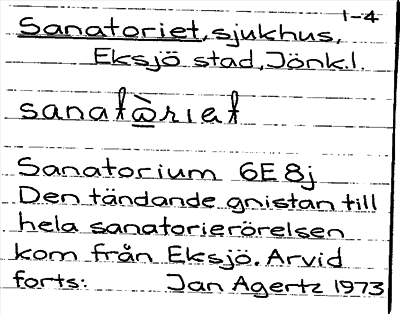 1-4
Sanatoriet, sjukhus,
Eksjö stad, Jönk.l.
sanatàriet
Sanatorium 6E 8j
Den tändande gnistan till
hela sanatorierörelsen
kom från Eksjö. Arvid
forts: Jan Agertz 1973